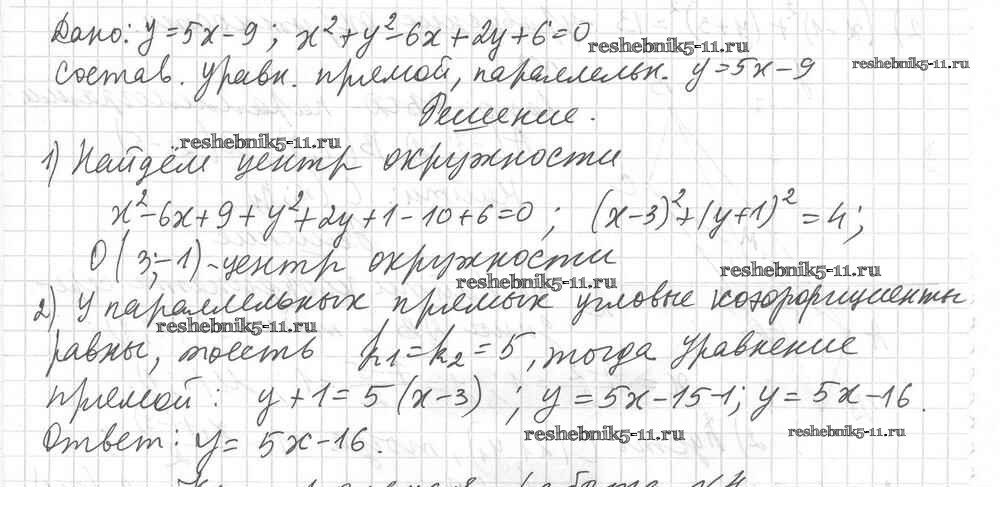 Дано: y=5x-9; x²+y²-6x+2y+6=0
reshebnik5-11.ru
reshebnik5-11.ru
состав. уравн. прямой, параллельн. y=5x-9
Решение.
reshebnik5-11.ru
1) Найдём центр окружности
x²-6x+9+y²+2y+1-10+6=0; (x-3)²+(y+1)²=4;
O(3;-1)-центр окружности
reshebnik5-11.ru
reshebnik5-11.ru
2) У параллельных прямых угловые коэффициенты
reshebnik5-11.ru
равны, тоесть k₁=k₂=5, тогда уравнение
прямой: y+1=5(x-3); y=5x-15-1; y=5x-16.
Ответ: y=5x-16.
reshebnik5-11.ru
reshebnik5-11.ru